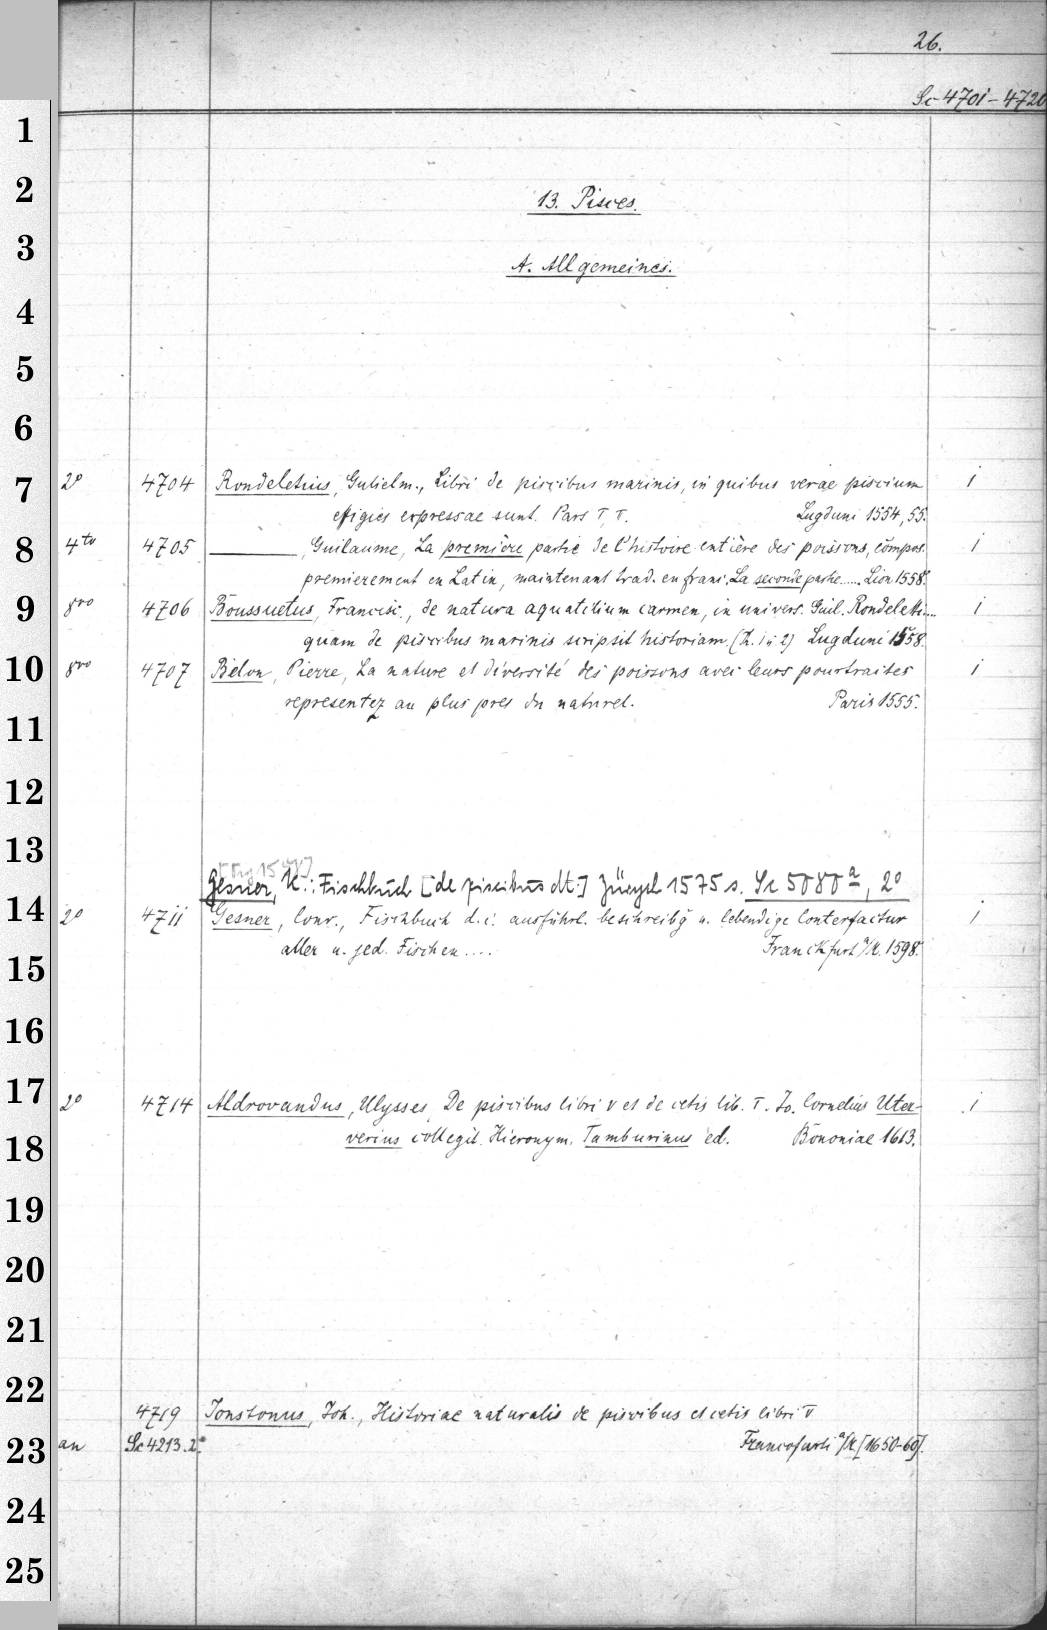 26.
Sc 4701-4720
1
2
13. Pisces.
3
A. Allgemeines.
4
5
6
7
2° 4704 Rondeletius, Gulielm., Libri de piscibus marinis, in quibus verae piscium 1
effigies expressae sunt. Pars I, II. Lugduni 1554, 55.
8
4to 4705 ______, Guilaume, La première partie de l'histoire entière des poissons, compos. 1
premierement en Latin, maintenant trad. en franc. La seconde partie..... Lion 1558.
9
8vo 4706 Boussuetus, Francisc., de natura aquatilium carmen, in univers. Guil. Rondeletii... 1
quam de piscibus marinis scripsit historiam. (T. 1 u. 2) Lugduni 1558.
10
8vo 4707 Belon, Pierre, La nature et diversité des poissons avec leurs pourtraites 1
representez au plus pres du naturel. Paris 1555.
11
12
13
Gesner, K.: Fischbuch [de piscibus dt.] Zürych 1575 s. Sc 5080 a, 2°
14
2° 4711 Gesner, Conr., Fischbuch d. i. ausführl. beschreibg u. lebendige Conterfactur 1
aller u. jed. Fischen.... Franckfurt a/M. 1598.
15
16
17
2° 4714 Aldrovandus, Ulysses, De piscibus libri V et de cetis lib. I. Jo. Cornelius Uter- 1
verius collegit. Hieronym. Tamburinus ed. Bononiae 1613.
18
19
20
21
22
4719 Jonstonus, Joh., Historiae naturalis de piscibus et cetis libri V
23
an Sc 4213.2° Francofurti a/M [1650-60].
24
25